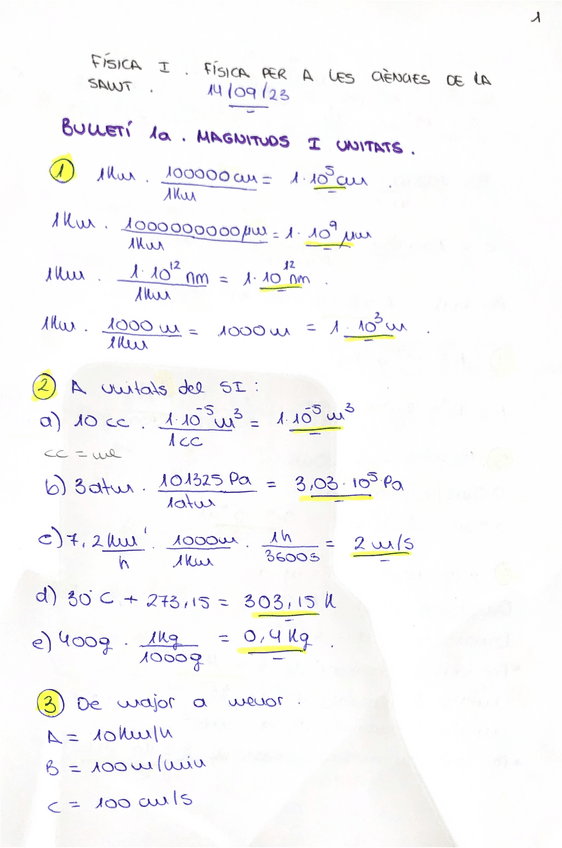 1
FÍSICA I. FÍSICA PER A LES CIÈNCIES DE LA
SALUT. 14/09/23
BULLETÍ 1a. MAGNITUDS I UNITATS.
1 1Km · 100000cm / 1Km = 1·10⁵cm.
1Km · 1000000000µm / 1Km = 1·10⁹µm
1Km · 1·10¹² nm / 1Km = 1·10¹² nm.
1Km · 1000 m / 1Km = 1000m = 1·10³m.
2 A unitats del SI:
a) 10 cc · 1·10⁻⁵m³ / 1cc = 1·10⁻⁵m³
cc = ml
b) 3atm · 101325 Pa / 1atm = 3,03·10⁵·Pa
c) 7,2Km / h · 1000m / 1Km · 1h / 3600s = 2 m/s
d) 30°C + 273,15 = 303,15 K
e) 400g · 1Kg / 1000g = 0,4 Kg.
3 De major a menor.
A = 10Km/h
B = 100m/min
C = 100 cm/s